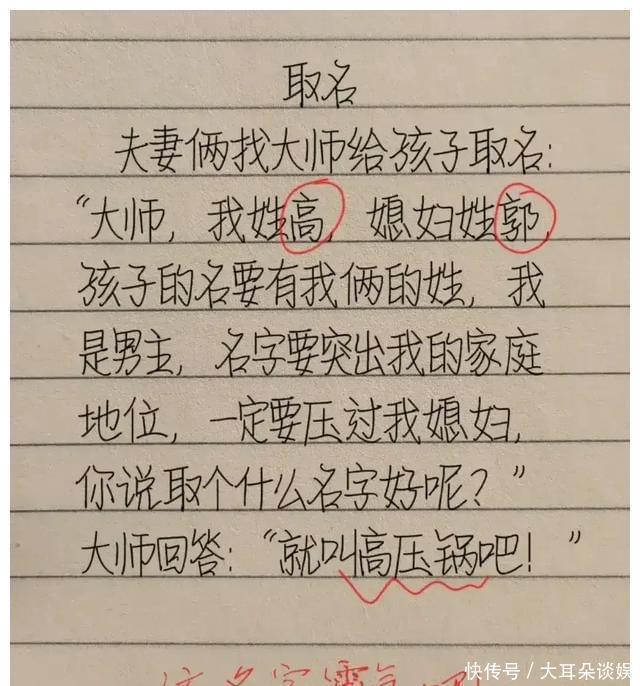 取名
夫妻俩找大师给孩子取名:
“大师, 我姓高, 媳妇姓郭,
孩子的名要有我俩的姓, 我
是男主, 名字要突出我的家庭
地位, 一定要压过我媳妇,
你说取个什么名字好呢?”
大师回答:“就叫高压锅吧!”
快传号/大耳朵谈娱